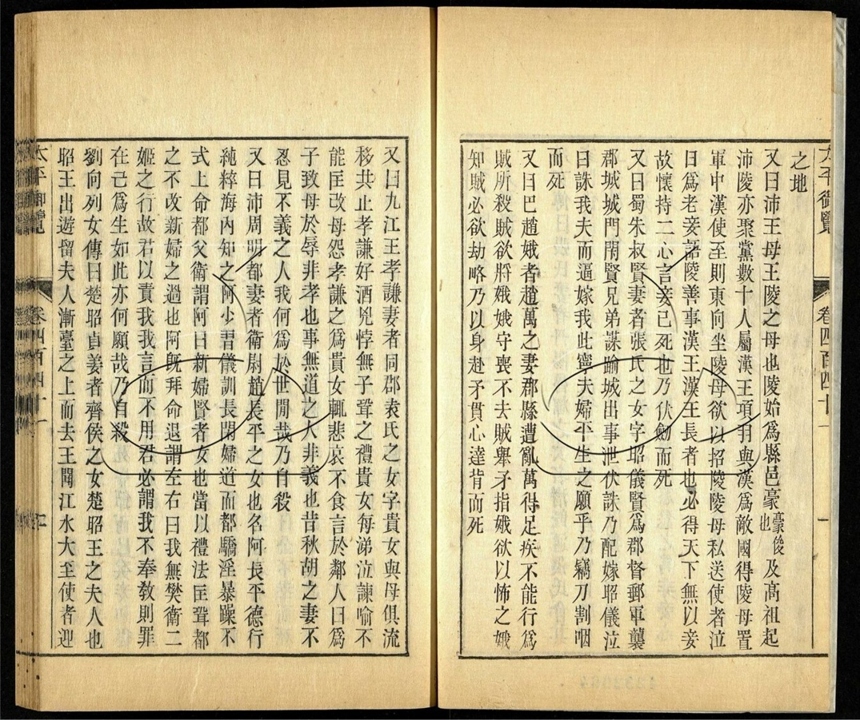 之地
又曰沛王母王陵之母也陵始爲縣邑豪豪俊也及高祖起
沛陵亦聚黨數十人屬漢王項羽與漢爲敵國得陵母置
軍中漢使至則東向坐陵母欲以招陵陵母私送使者泣
曰爲老妾語陵善事漢王漢王長者也必得天下無以妾
故懷持二心言妾已死也乃伏劒而死
又曰蜀朱叔賢妻者張氏之女字昭儀賢爲郡督郵軍襲
郡城城門閉賢兄弟謀踰城出事泄伏誅乃配嫁昭儀泣
曰誅我夫而逼嫁我此寧夫婦平生之願乎乃竊刀割咽
而死
又曰巴趙娥者趙萬之妻郡縣遭亂萬得足疾不能行爲
賊所殺賊欲將娥娥守喪不去賊舉矛指娥欲以怖之娥
知賊必欲劫略乃以身赴矛貫心達背而死
太平御覽
卷四百四十一
又曰九江王孝謙妻者同郡袁氏之女字貴女與母俱流
移共止孝謙好酒兇悖無子聟之禮貴女每涕泣諫喻不
能匡改母怨孝謙之爲貴女輒悲哀不食言於鄰人曰爲
子致母於辱非孝也事無道之人非義也昔秋胡之妻不
忍見不義之人我何爲於世閒哉乃自殺
又曰沛周明都妻者衛尉趙長平之女也名阿長平德行
純粹海內知之阿少習儀訓長閑婦道而都驕淫暴躁不
式上命都父衛謂阿曰新婦賢者女也當以禮法匡聟都
之不改新婦之過也阿旣拜命退謂左右曰我無樊衛二
姬之行故君以責我我言而不用君必謂我不奉敎則罪
在己爲生如此亦何願哉乃自殺
劉向列女傳曰楚昭貞姜者齊侯之女楚昭王之夫人也
昭王出遊留夫人漸臺之上而去王聞江水大至使者迎
太平御覽
卷四百四十一